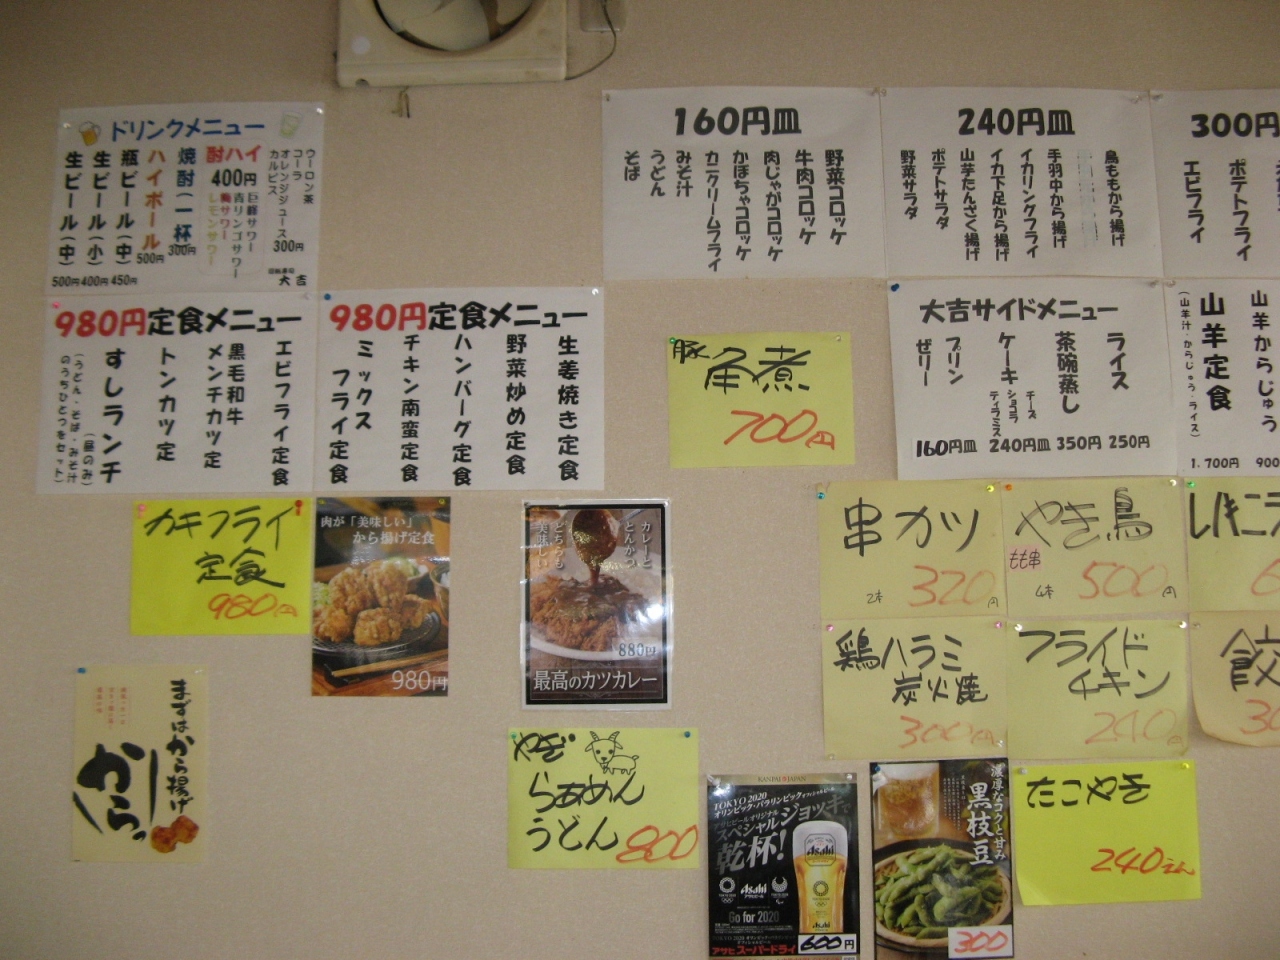 ドリンクメニュー
生ビール(中)
500円
生ビール(小)
400円
瓶ビール(中)
450円
ハイボール
500円
焼酎(一杯)
300円
酎ハイ
400円
巨峰サワー
青リンゴサワー
梅サワー
レモンサワー
ウーロン茶
コーラ
オレンジジュース
カルピス
300円
大吉
160円皿
野菜コロッケ
牛肉コロッケ
肉じゃがコロッケ
かぼちゃコロッケ
カニクリームフライ
みそ汁
うどん
そば
240円皿
鳥ももから揚げ
手羽中から揚げ
イカリングフライ
イカ下足から揚げ
山芋たんざく揚げ
ポテトサラダ
野菜サラダ
300円
ポテトフライ
エビフライ
980円定食メニュー
エビフライ定食
黒毛和牛
メンチカツ定
トンカツ定
すしランチ
(昼のみ)
(うどん・そば・みそ汁
のうちひとつをセット)
980円定食メニュー
生姜焼き定食
野菜炒め定食
ハンバーグ定食
チキン南蛮定食
ミックス
フライ定食
豚角煮
700円
大吉サイドメニュー
ライス
250円
茶碗蒸し
350円
ケーキ
チーズ
ショコラ
ティラミス
240円皿
プリン
ゼリー
160円皿
山羊からじゅう
900
山羊定食
(山羊汁・からじゅう・ライス)
1.700円
カキフライ
定食
980円
肉が「美味しい」
から揚げ定食
980円
カレーと
とんかつ
どちらも
美味しい
880円
最高のカツカレー
串カツ
2本 320円
やき鳥
もも串
4本 500円
鶏ハラミ
炭火焼
300
フライド
チキン
240円
餃
まずはから揚げ
から。
やぎ
らぁめん
うどん 800
KANPAI JAPAN
TOKYO 2020
オリンピック・パラリンピックオフィシャルビール
アサヒビールオリジナル
スペシャルジョッキで
乾杯!
Asahi
アサヒビール
Go for 2020
アサヒスーパードライ
600円
濃厚なコクと甘み
黒枝豆
300
たこやき
240えん